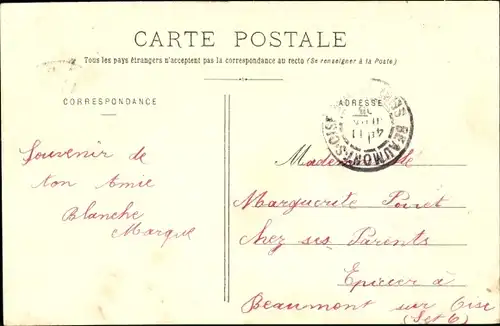 CARTE POSTALE
Tous les pays étrangers n'acceptent pas la correspondance au recto (Se renseigner à la Poste)
CORRESPONDANCE
ADRESSE
BEAUMONT-S-OISE
Souvenir de
ton Amie
Blanche
Marque
Marguerite
chez ses Parents
Epicier à
Beaumont sur Oise
(Set O)